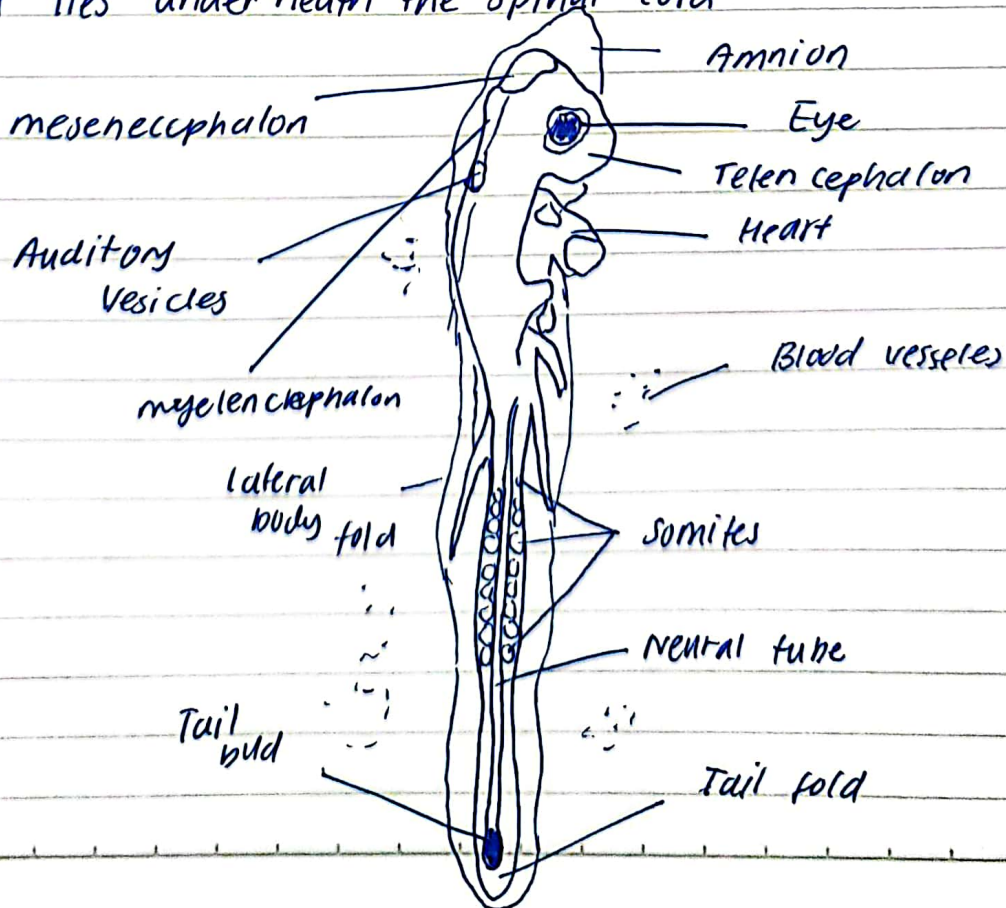 lies underneath the spinal cord
Amnion
mesenecephalon
Eye
Telencephalon
Heart
Auditory
Vesicles
Blood vesseles
myelencephalon
lateral
body fold
somites
Neural tube
Tail
bud
Tail fold